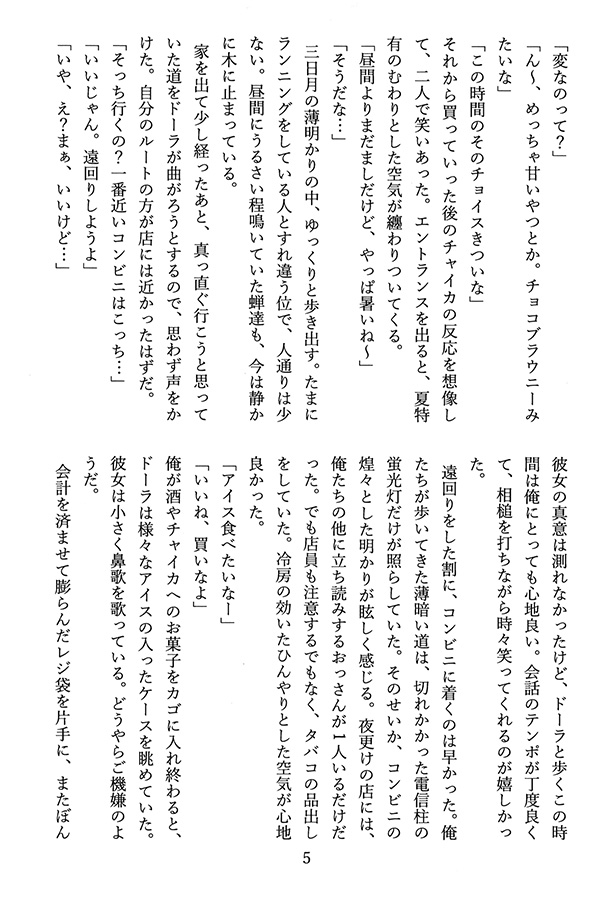 「変なのって？」
「ん～、めっちゃ甘いやつとか。チョコブラウニーみ
たいな」
「この時間のそのチョイスきついな」
それから買っていった後のチャイカの反応を想像し
て、二人で笑いあった。エントランスを出ると、夏特
有のむわりとした空気が纏わりついてくる。
「昼間よりまだましだけど、やっぱ暑いね～」
「そうだな…」
三日月の薄明かりの中、ゆっくりと歩き出す。たまに
ランニングをしている人とすれ違う位で、人通りは少
ない。昼間にうるさい程鳴いていた蝉達も、今は静か
に木に止まっている。
家を出て少し経ったあと、真っ直ぐ行こうと思って
いた道をドーラが曲がろうとするので、思わず声をか
けた。自分のルートの方が店には近かったはずだ。
「そっち行くの？一番近いコンビニはこっち…」
「いいじゃん。遠回りしようよ」
「いや、え？まぁ、いいけど…」
彼女の真意は測れなかったけど、ドーラと歩くこの時
間は俺にとっても心地良い。会話のテンポが丁度良く
て、相槌を打ちながら時々笑ってくれるのが嬉しかっ
た。
遠回りをした割に、コンビニに着くのは早かった。俺
たちが歩いてきた薄暗い道は、切れかかった電信柱の
蛍光灯だけが照らしていた。そのせいか、コンビニの
煌々とした明かりが眩しく感じる。夜更けの店には、
俺たちの他に立ち読みするおっさんが1人いるだけだ
った。でも店員も注意するでもなく、タバコの品出し
をしていた。冷房の効いたひんやりとした空気が心地
良かった。
「アイス食べたいなー」
「いいね、買いなよ」
俺が酒やチャイカへのお菓子をカゴに入れ終わると、
ドーラは様々なアイスの入ったケースを眺めていた。
彼女は小さく鼻歌を歌っている。どうやらご機嫌のよ
うだ。
会計を済ませて膨らんだレジ袋を片手に、またぼん
5